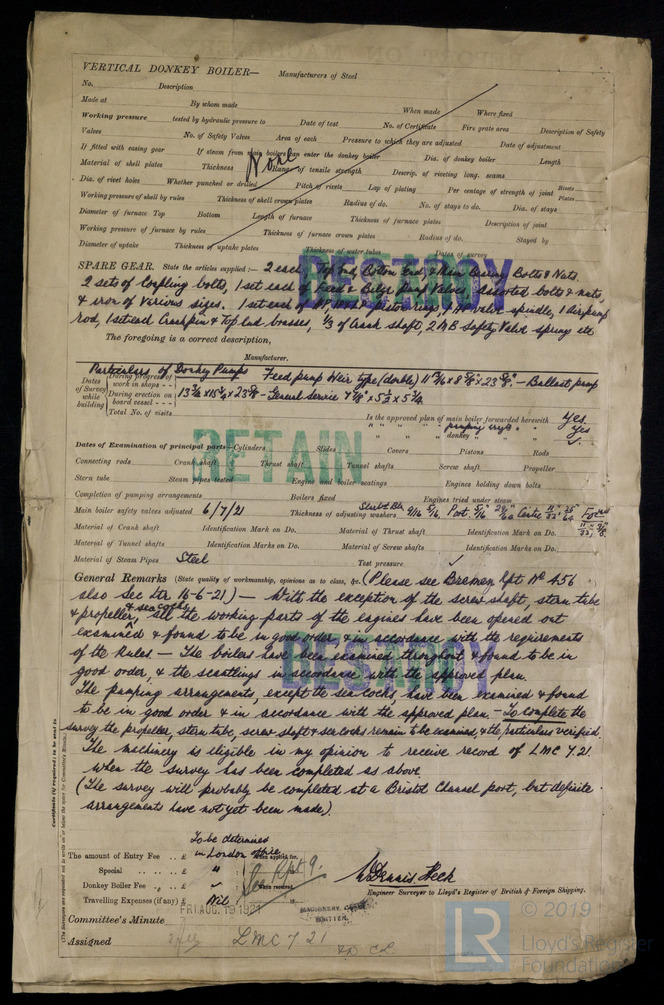 VERTICAL DONKEY BOILER— Manufacturers of Steel
No. Description
Made at By whom made When made Where fixed
Working pressure tested by hydraulic pressure to Date of test No. of Certificate Fire grate area Description of Safety
Valves No. of Safety Valves Area of each Pressure to which they are adjusted Date of adjustment
If fitted with easing gear If steam from main boilers can enter the donkey boiler Dia. of donkey boiler Length
Material of shell plates Thickness Range of tensile strength Descrip. of riveting long. seams
None
Dia. of rivet holes Whether punched or drilled Pitch of rivets Lap of plating Per centage of strength of joint Rivets Plates
Working pressure of shell by rules Thickness of shell crown plates Radius of do. No. of stays to do. Dia. of stays
Diameter of furnace Top Bottom Length of furnace Thickness of furnace plates Description of joint
Working pressure of furnace by rules Thickness of furnace crown plates Radius of do. Stayed by
Diameter of uptake Thickness of uptake plates Thickness of water tubes Dates of survey
DESTROY
SPARE GEAR. State the articles supplied:— 2 each, Top End, Bottom End, & Main bearing Bolts & Nuts.
2 sets of Coupling bolts, 1 set each of Feed & Bilge pump Valves, assorted bolts & nuts,
& iron of various sizes. 1 set each of piston rings, valve spindle, 1 Airpump
rod, 1 set each Crankpin & Top End brasses, 1/3 of Crank shaft, 2 M B Safety Valve springs etc
The foregoing is a correct description,
Manufacturer.
Particulars of Donkey Pumps Feed pump Weir type (double) — Ballast pump
— General Service
Dates of Survey while building
During progress of work in shops - -
During erection on board vessel - - -
Total No. of visits
Is the approved plan of main boiler forwarded herewith Yes
" " " pumping " " Yes
" " " donkey " " "
RETAIN
Dates of Examination of principal parts—Cylinders Slides Covers Pistons Rods
Connecting rods Crank shaft Thrust shaft Tunnel shafts Screw shaft Propeller
Stern tube Steam pipes tested Engine and boiler seatings Engines holding down bolts
Completion of pumping arrangements Boilers fixed Engines tried under steam
Main boiler safety valves adjusted 6/7/21 Thickness of adjusting washers
Material of Crank shaft Identification Mark on Do. Material of Thrust shaft Identification Mark on Do.
Material of Tunnel shafts Identification Marks on Do. Material of Screw shafts Identification Marks on Do.
Material of Steam Pipes Steel Test pressure
General Remarks (State quality of workmanship, opinions as to class, &c. (Please see Bremen Rpt No 456
also Sec Ltr 16-6-21) — With the exception of the screw shaft, stern tube
& propeller, & sea cocks, all the working parts of the engines have been opened out
examined & found to be in good order, & in accordance with the requirements
of the Rules — The boilers have been examined throughout & found to be in
good order, & the scantlings in accordance with the approved plan.
DESTROY
The pumping arrangements, except the sea cocks, have been examined & found
to be in good order & in accordance with the approved plan. — To complete the
survey the propeller, stern tube, screw shaft & sea cocks remain to be examined, & the particulars verified.
The machinery is eligible in my opinion to receive record of LMC 7.21.
when the survey has been completed as above
(The survey will probably be completed at a Bristol Channel port, but definite
arrangements have not yet been made).
Certificate (if required) to be sent to
(The Surveyors are requested not to write on or below the space for Committee's Minute.)
To be determined
in London office
The amount of Entry Fee .. £ When applied for,
Special .. .. £ "
See Rpt 9.
Donkey Boiler Fee .. .. £ When received,
Travelling Expenses (if any) £ Nil
Dennis Heck
Engineer Surveyor to Lloyd's Register of British & Foreign Shipping.
FRI. AUG. 19 1921
Committee's Minute
Assigned LMC 7 21
CL.
MACHINERY CERT. WRITTEN.
LR
© 2019
Lloyd's Register
Foundation